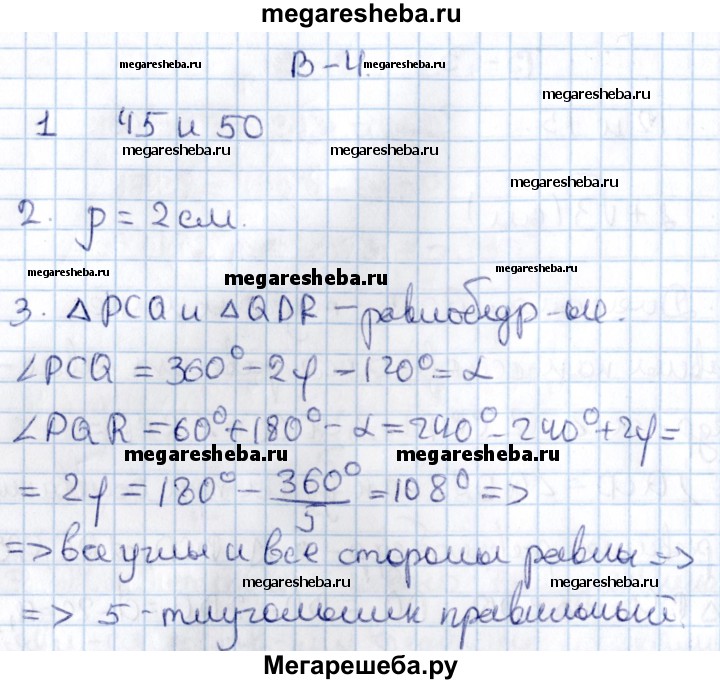 megaresheba.ru
megaresheba.ru В-4. megaresheba.ru
megaresheba.ru
1 45 и 50
megaresheba.ru megaresheba.ru
megaresheba.ru
2. р = 2 см.
megaresheba.ru megaresheba.ru megaresheba.ru
3. △PCQ и △QDR – равнобедр-ые.
∠PCQ = 360° - 2φ - 120° = α
∠PQR = 60° + 180° - α = 240° - 240° + 2φ =
megaresheba.ru megaresheba.ru
= 2φ = 180° - 360°/5 = 108° =>
=> все углы и все стороны равны =>
megaresheba.ru megaresheba.ru
=> 5-тиугольник правильный.
Мегарешеба.ру